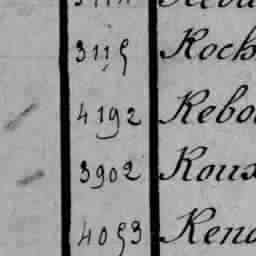 3115 Roch
4192 Rebo
3902 Roux
4053 Rena